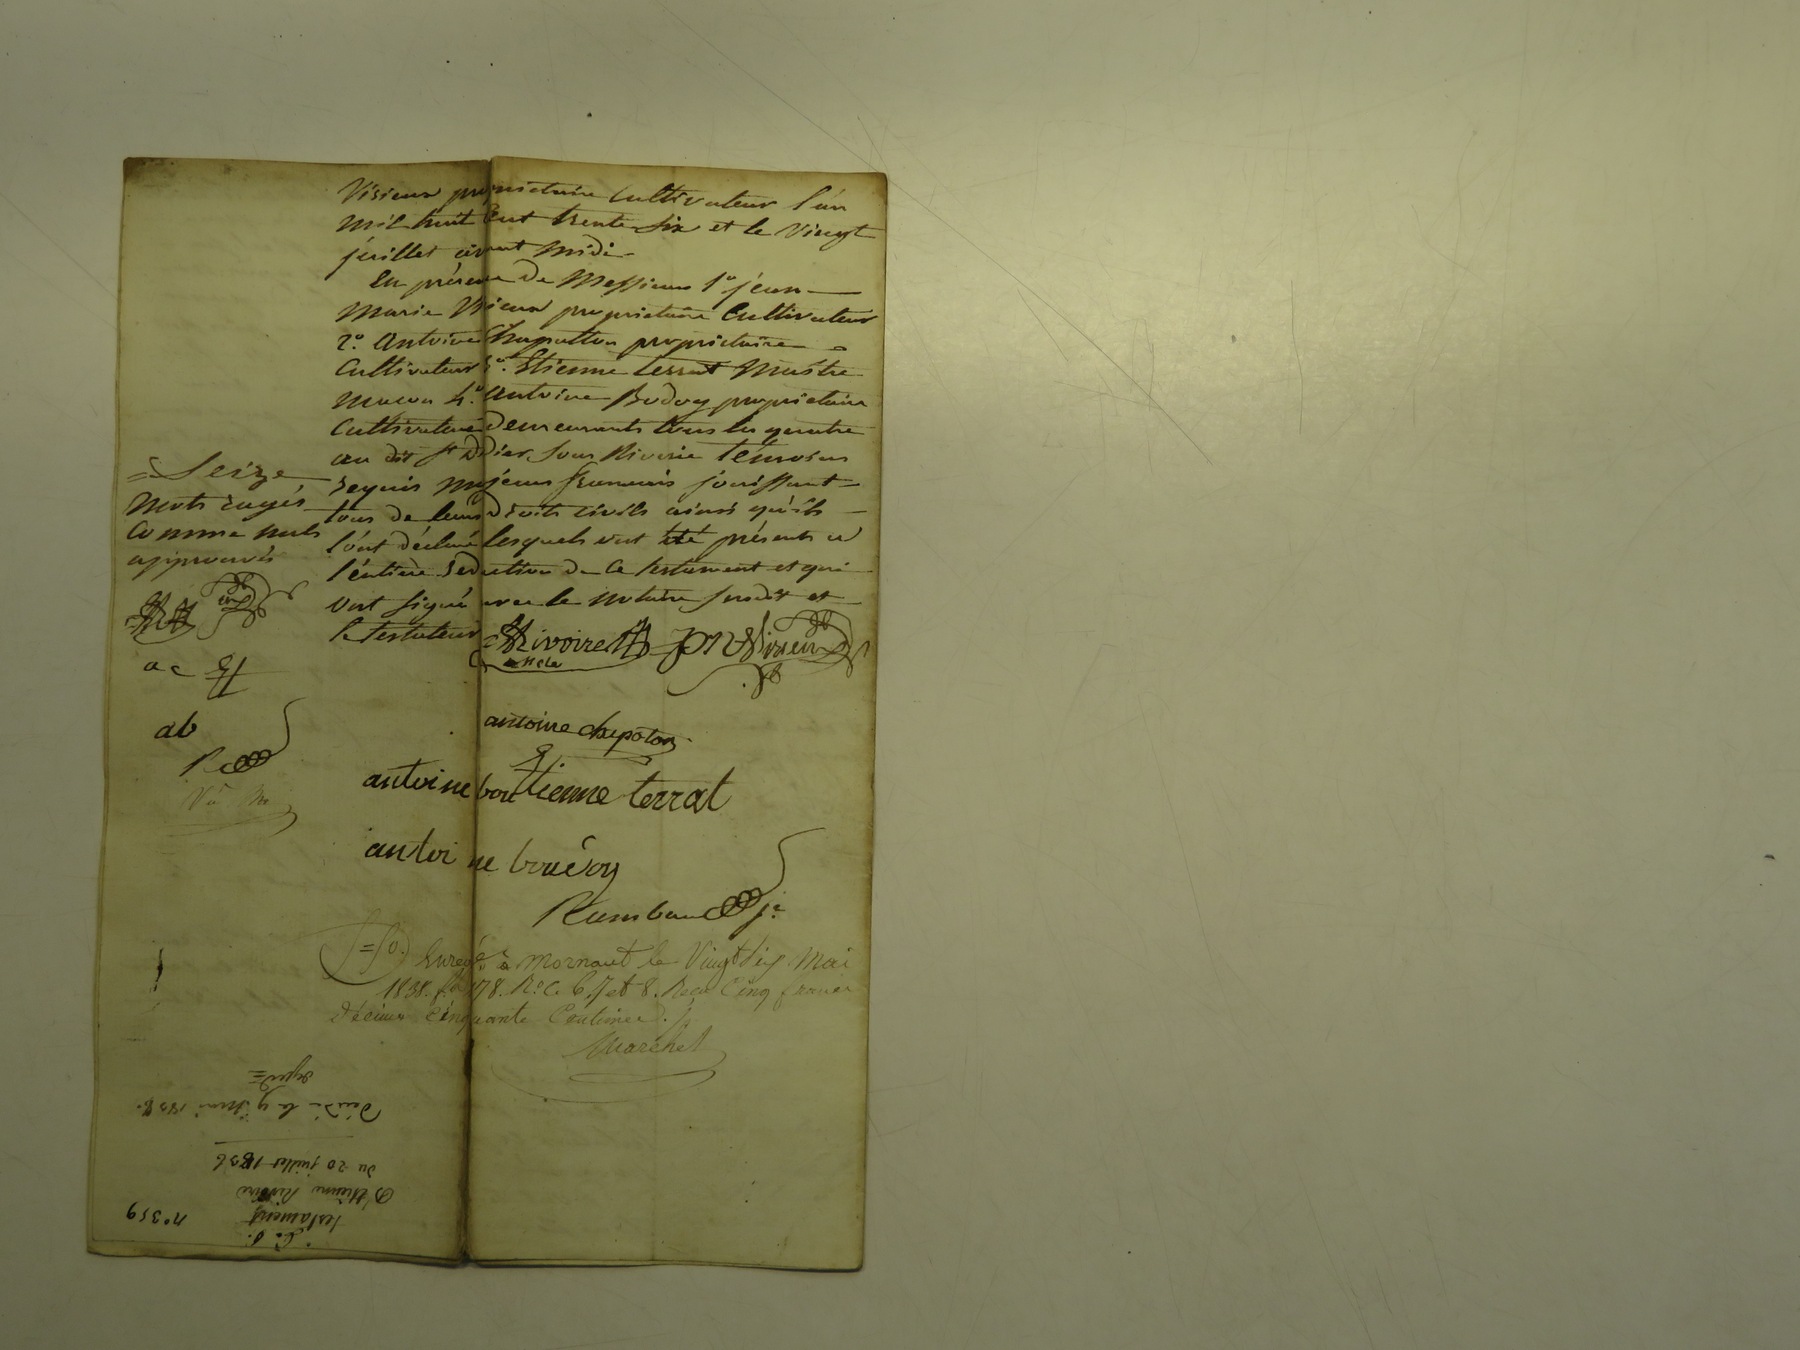 Visieux propriétaire cultivateur l'an
mil huit cent trente six et le vingt
juillet avant midi
En présence de Messieurs 1º jean
Marie Visieux propriétaire Cultivateur
2º. Antoine Chapotton propriétaire
Cultivateur 3º. Etienne terrat Maître
Macon 4º. Antoine Bodoy propriétaire
Cultivateur Demeurants tous les quatre
au dit st Didier sous Riverie témoins
requis majeurs français jouissant
tous de leurs droits civils ainsi qu'ils
l'ont déclaré lesquels ont été présents a
l'entière rédaction de ce testament et qui
ont signé avec le notaire susdt et
le testateur
= Seize
mots rayés
Comme nuls
approuvés
Rivoire
JM Visieux
a c
ab
antoine chepoton
antoine bou
Etienne terrat
antoine bouéoy
Rambaud jne
Enregé. à Mornant le Vingt six Mai
1838. fo. 178. Ro. C. 6. 7 et 8. Reçu Cinq francs
décime Cinquante Centimes.
Marchet
nº 359
testament
D'Etienne Rivoire
du 20 juillet 1836
décédé le 9 1838.